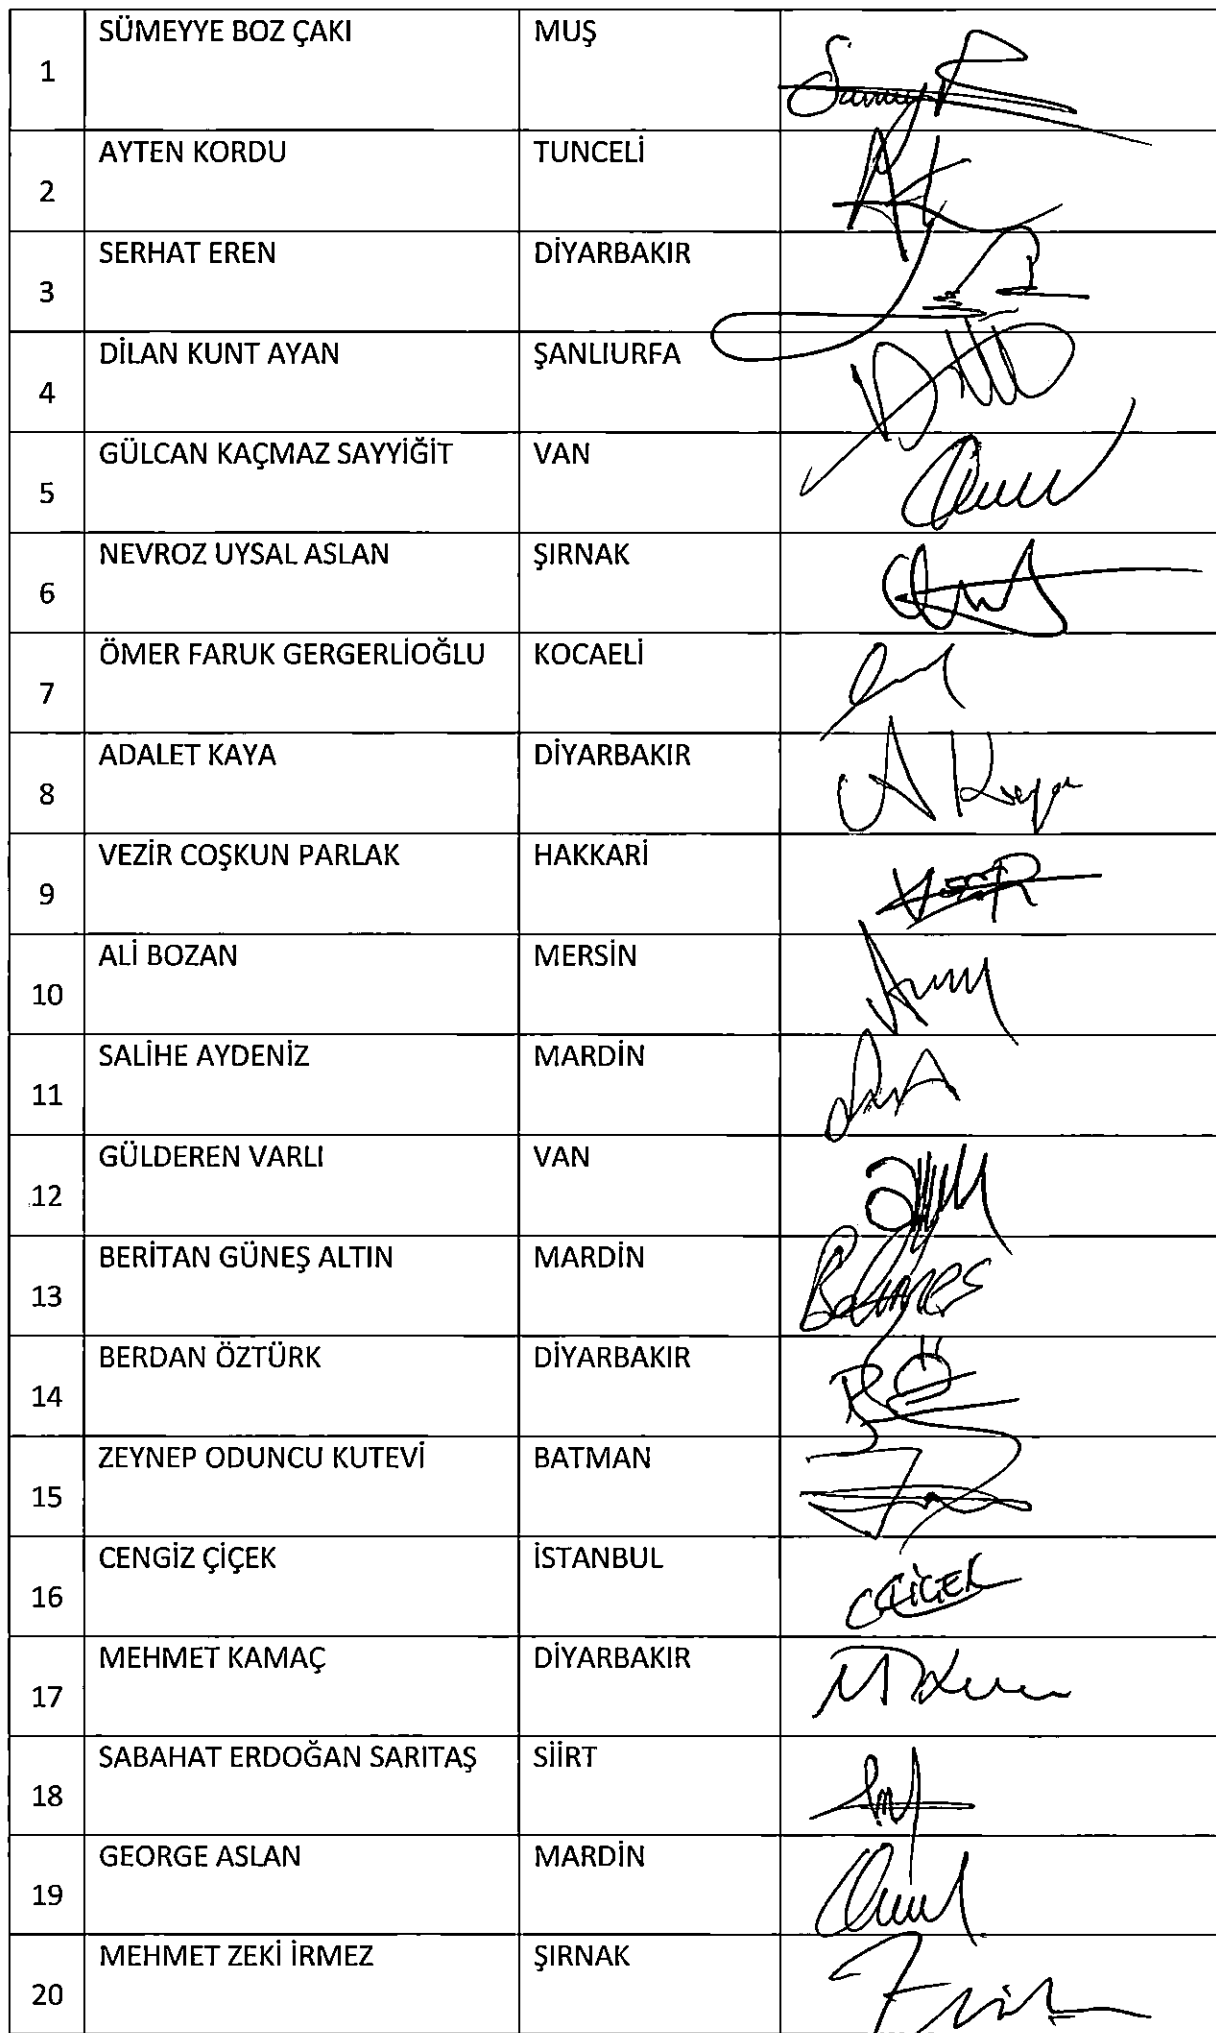 1 SÜMEYYE BOZ ÇAKI MUŞ
2 AYTEN KORDU TUNCELİ
3 SERHAT EREN DİYARBAKIR
4 DİLAN KUNT AYAN ŞANLIURFA
5 GÜLCAN KAÇMAZ SAYYİĞİT VAN
6 NEVROZ UYSAL ASLAN ŞIRNAK
7 ÖMER FARUK GERGERLİOĞLU KOCAELİ
8 ADALET KAYA DİYARBAKIR A Kaya
9 VEZİR COŞKUN PARLAK HAKKARİ
10 ALİ BOZAN MERSİN
11 SALİHE AYDENİZ MARDİN
12 GÜLDEREN VARLI VAN
13 BERİTAN GÜNEŞ ALTIN MARDİN
14 BERDAN ÖZTÜRK DİYARBAKIR BÖ
15 ZEYNEP ODUNCU KUTEVİ BATMAN
16 CENGİZ ÇİÇEK İSTANBUL
17 MEHMET KAMAÇ DİYARBAKIR
18 SABAHAT ERDOĞAN SARITAŞ SİİRT
19 GEORGE ASLAN MARDİN
20 MEHMET ZEKİ İRMEZ ŞIRNAK